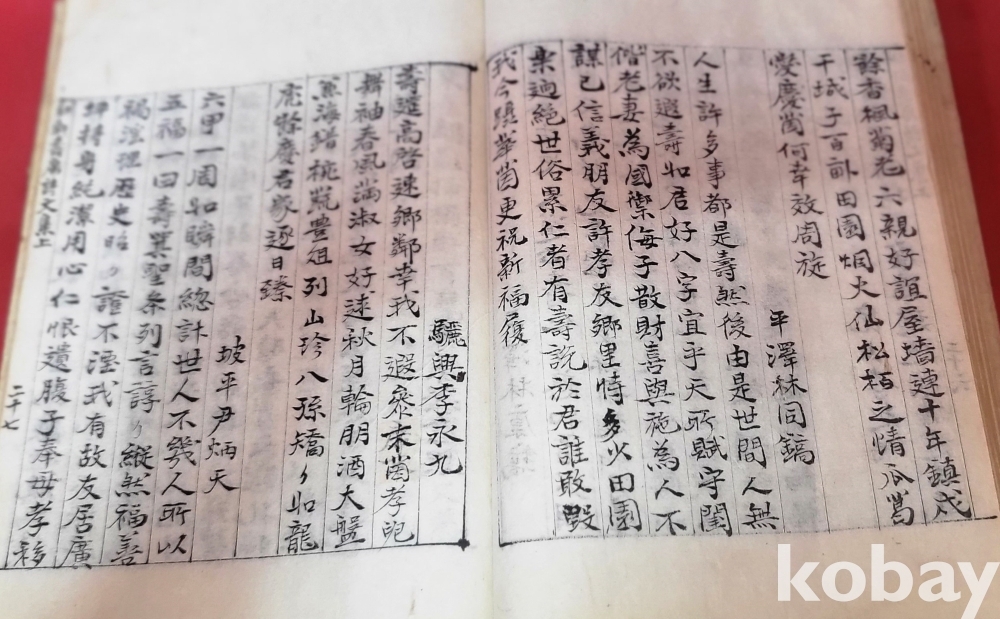 餘香楓菊老六親好誼屋墻連十年鎮戍
干城子百畝田園烟火仙松栢之情瓜葛
慶茵何幸效周旋
平澤林回鎬
人生許多事都是壽然後由是世間人無
不欲遐壽如君好八字宜乎天所賦守閨
偕老妻為國禦侮子散財喜與施為人不
謀已信義朋友許孝友鄉里恃多少田園
樂迥絶世俗累仁者有壽說於君誰敢毀
我今蹺華茵更祝新福履
驪興李永九
壽筵高啓速鄉鄰幸我不遐參末茵孝
舞袖春風滿淑女好逑秋月輪朋酒大盤
魚海錯桃甁豊俎列山珍八孫矯々如龍
虎幣慶君家逐日臻
坡平尹炳天
六甲一周如瞬間總計世人不幾人所以
五福一曰壽箕聖条列言諄々縱然福善
禍淫理歷史昭々證不湮我有故友居廣
坤持身純潔用心仁恨遺腹子奉母孝移
詩文集上
二十七
kobay